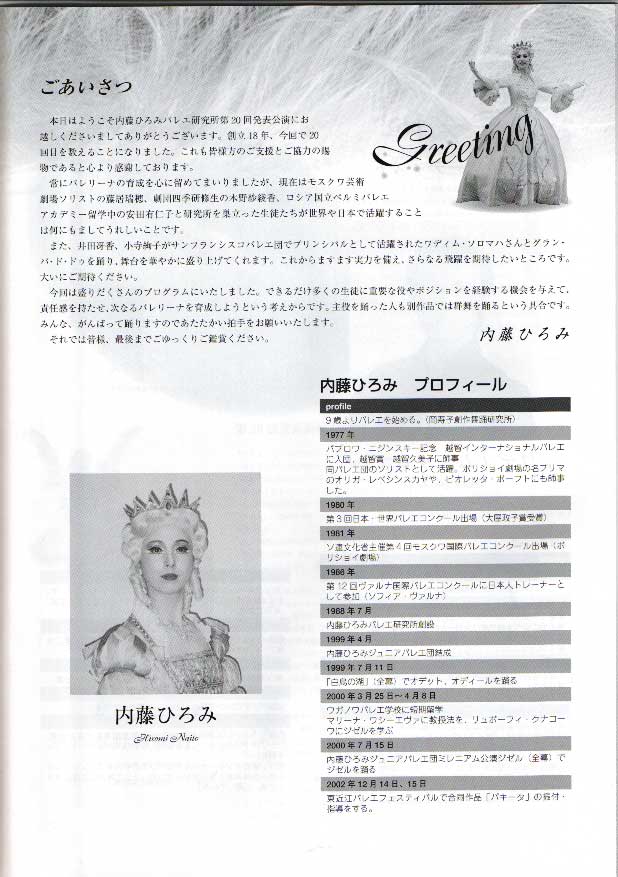 ごあいさつ
Greeting
　本日はようこそ内藤ひろみバレエ研究所第20回発表公演にお
越しくださいましてありがとうございます。創立18年、今回で20
回目を数えることになりました。これも皆様方のご支援とご協力の賜
物であると心より感謝しております。
　常にバレリーナの育成を心に留めてまいりましたが、現在はモスクワ芸術
劇場ソリストの藤居瑞穂、劇団四季研修生の木野紗綾香、ロシア国立ペルミバレエ
アカデミー留学中の安田有仁子と研究所を巣立った生徒たちが世界や日本で活躍すること
は何にもましてうれしいことです。
　また、井田冴香、小寺絢子がサンフランシスコバレエ団でプリンシパルとして活躍されたワディム・ソロマハさんとグラン・
パ・ド・ドゥを踊り、舞台を華やかに盛り上げてくれます。これからますます実力を備え、さらなる飛躍を期待したいところです。
大いにご期待ください。
　今回は盛りだくさんのプログラムにいたしました。できるだけ多くの生徒に重要な役やポジションを経験する機会を与えて、
責任感を持たせ、次なるバレリーナを育成しようという考えからです。主役を踊った人も別作品では群舞を踊るという具合です。
みんな、がんばって踊りますのであたたかい拍手をお願いいたします。
　それでは皆様、最後までごゆっくりご鑑賞ください。
内藤ひろみ
内藤ひろみ　プロフィール
profile
9歳よりバレエを始める。（岡寿子創作舞踊研究所）
1977年
パブロワ・ニジンスキー記念　越智インターナショナルバレエ
に入団。越智實　越智久美子に師事
同バレエ団のソリストとして活躍。ボリショイ劇場の名プリマ
のオリガ・レペシンスカヤや、ビオレッタ・ボーフトにも師事
した。
1980年
第3回日本・世界バレエコンクール出場（大屋政子賞受賞）
1981年
ソ連文化省主催第4回モスクワ国際バレエコンクール出場（ボ
リショイ劇場）
1986年
第12回ヴァルナ国際バレエコンクールに日本人トレーナーと
して参加（ソフィア・ヴァルナ）
1988年7月
内藤ひろみバレエ研究所創設
1999年4月
内藤ひろみジュニアバレエ団結成
1999年7月11日
「白鳥の湖」（全幕）でオデット、オディールを踊る
2000年3月25日〜4月8日
ワガノワバレエ学校に短期留学
マリーナ・ワシーエヴァに教授法を、リュボーフィ・クナコー
ワにジゼルを学ぶ
2000年7月15日
内藤ひろみジュニアバレエ団ミレニアム公演ジゼル（全幕）で
ジゼルを踊る
2002年12月14日、15日
東近江バレエフェスティバルで合同作品「パキータ」の振付・
指導をする。
内藤ひろみ
Hiromi Naito